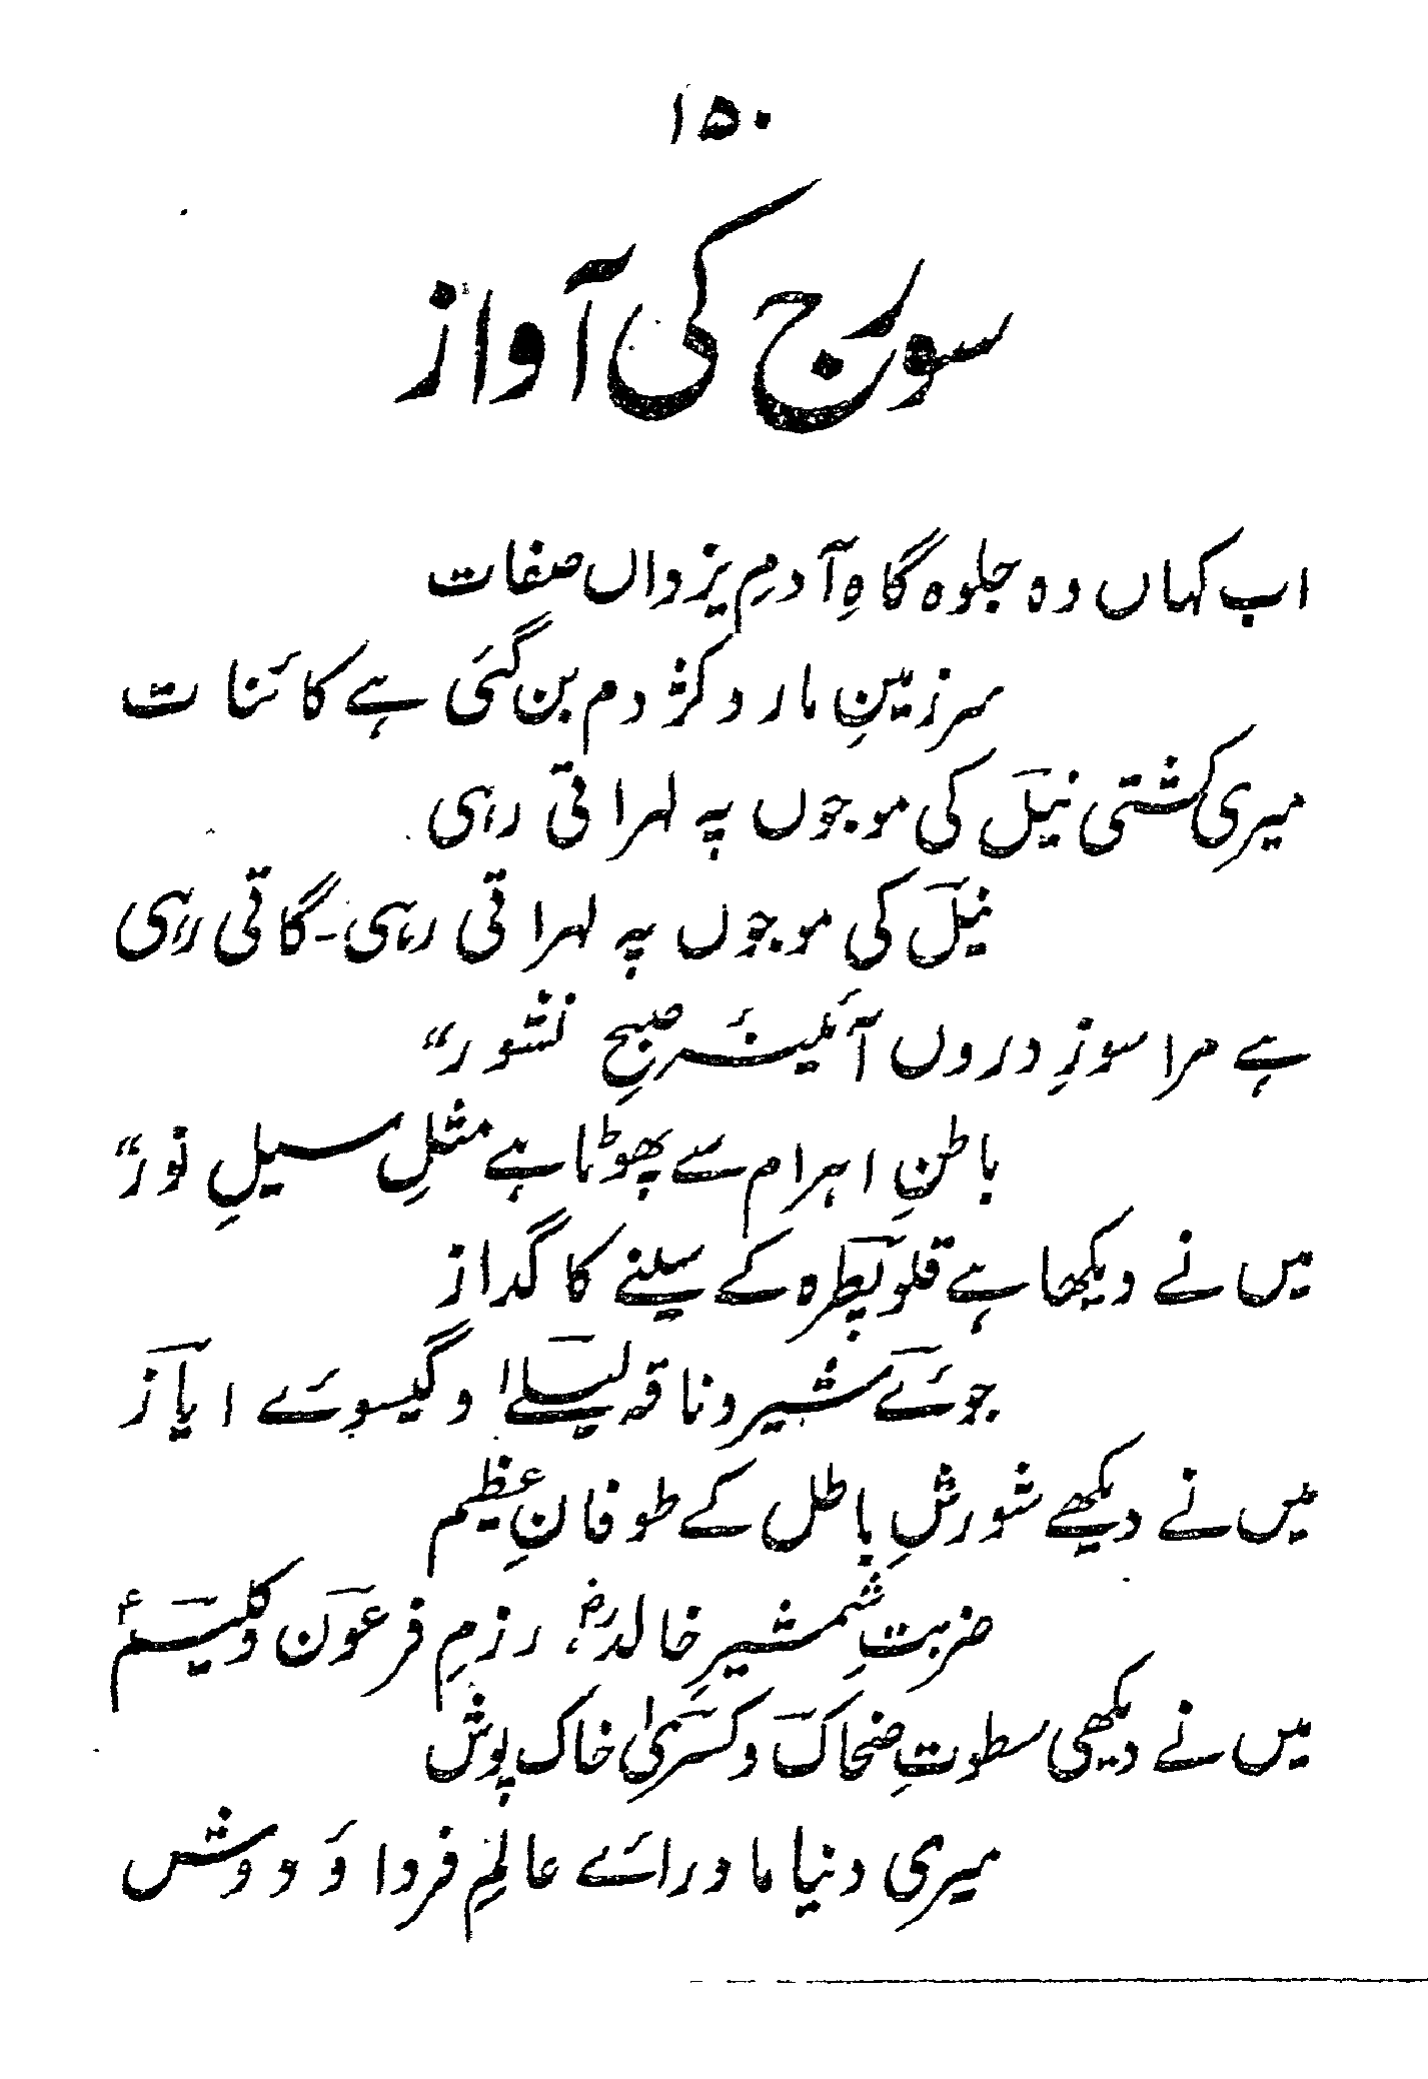 ۱۵۰
سورج کی آواز
اب کہاں وہ جلوہ گاہِ آدمِ یزداں صفات
سرزمینِ مار و کژدم بن گئی ہے کائنات
میری کشتی نیل کی موجوں پہ لہراتی رہی
نیل کی موجوں پہ لہراتی رہی۔ گاتی رہی
ہے مرا سوزِ دروں آئینۂ صبحِ نشور“
باطنِ اہرام سے پھوٹا ہے مثلِ سیلِ نور“
میں نے دیکھا ہے قلوپطرہ کے سینے کا گداز
جوئے شیر و ناقہ لیلےٰ و گیسوئے ایاز
میں نے دیکھے شورشِ باطل کے طوفانِ عظیم
ضربتِ شمشیرِ خالدؓ، رزمِ فرعون و کلیمؑ
میں نے دیکھی سطوتِ ضحاک و کسریٰ خاک پوش
میری دنیا ماورائے عالمِ فردا ؤ دوش